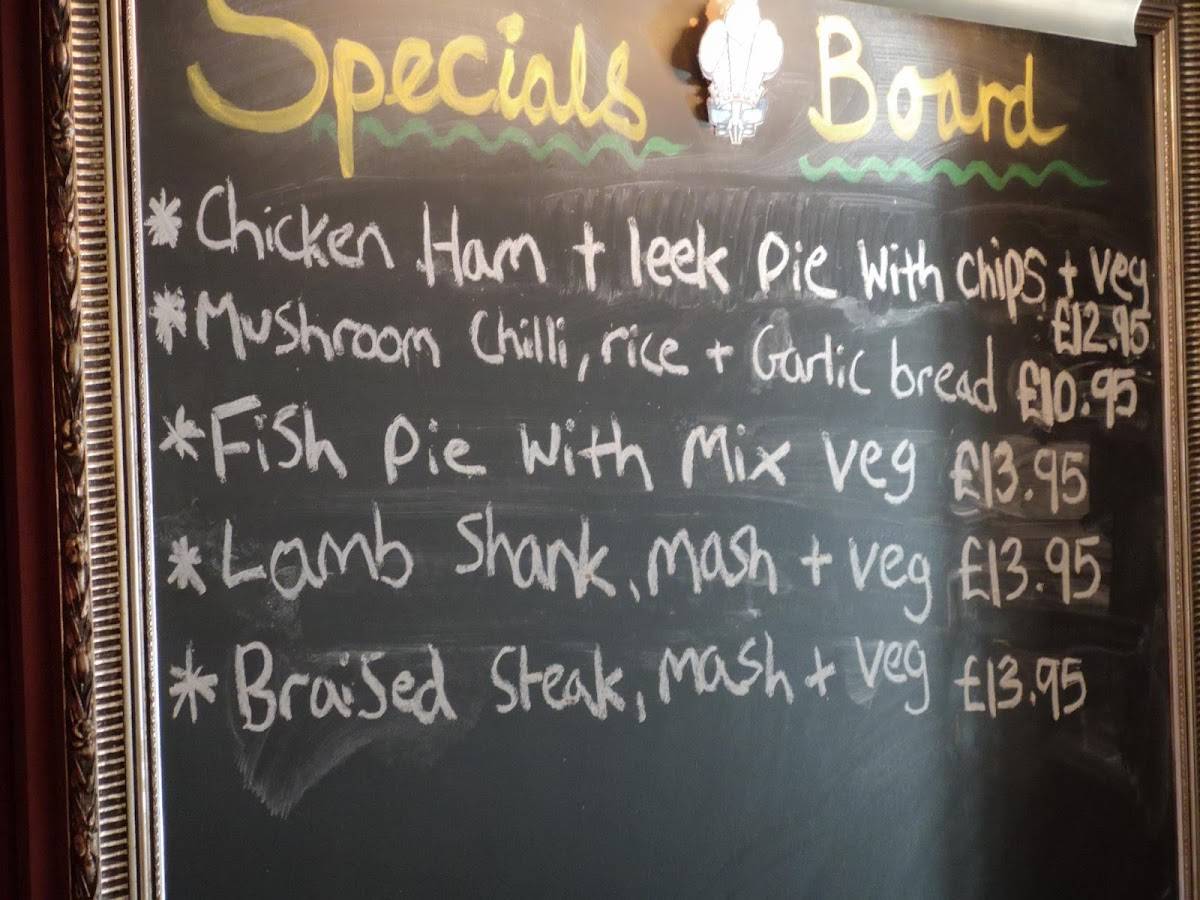 Specials Board
* Chicken Ham + leek pie with chips + veg
£12.95
* Mushroom Chilli, rice + Garlic bread £10.95
* Fish pie with Mix veg £13.95
* Lamb Shank, mash + veg £13.95
* Braised Steak, mash + veg £13.95